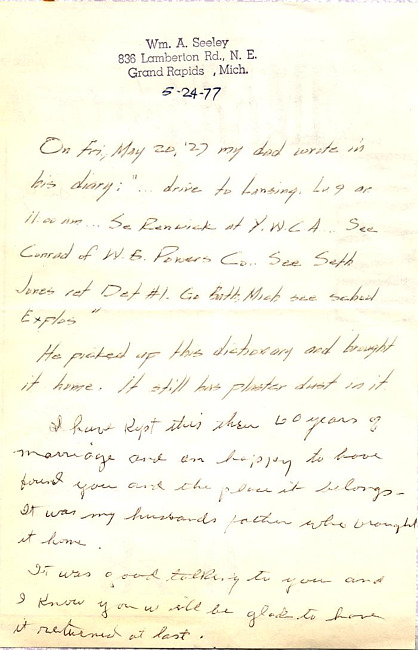 Wm. A. Seeley
836 Lamberton Rd., N. E.
Grand Rapids , Mich.
5-24-77
On Fri, May 20, '27 my dad wrote in
his diary: "... drive to Lansing. Lv 9 ar
11.00 am... Se Renwick at Y.W.C.A... See
Conrad of W. E. Powers Co.. See Seth
Jones ret Det #1. Go Bath, Mich see school
Explos"
He picked up this dictionary and brought
it home. It still has plaster dust in it
I have kept this thru 60 years of
marriage and am happy to have
found you and the place it belongs-
It was my husbands father who brought
it home.
It was good talking to you and
I know you will be glad to have
it returned at last.